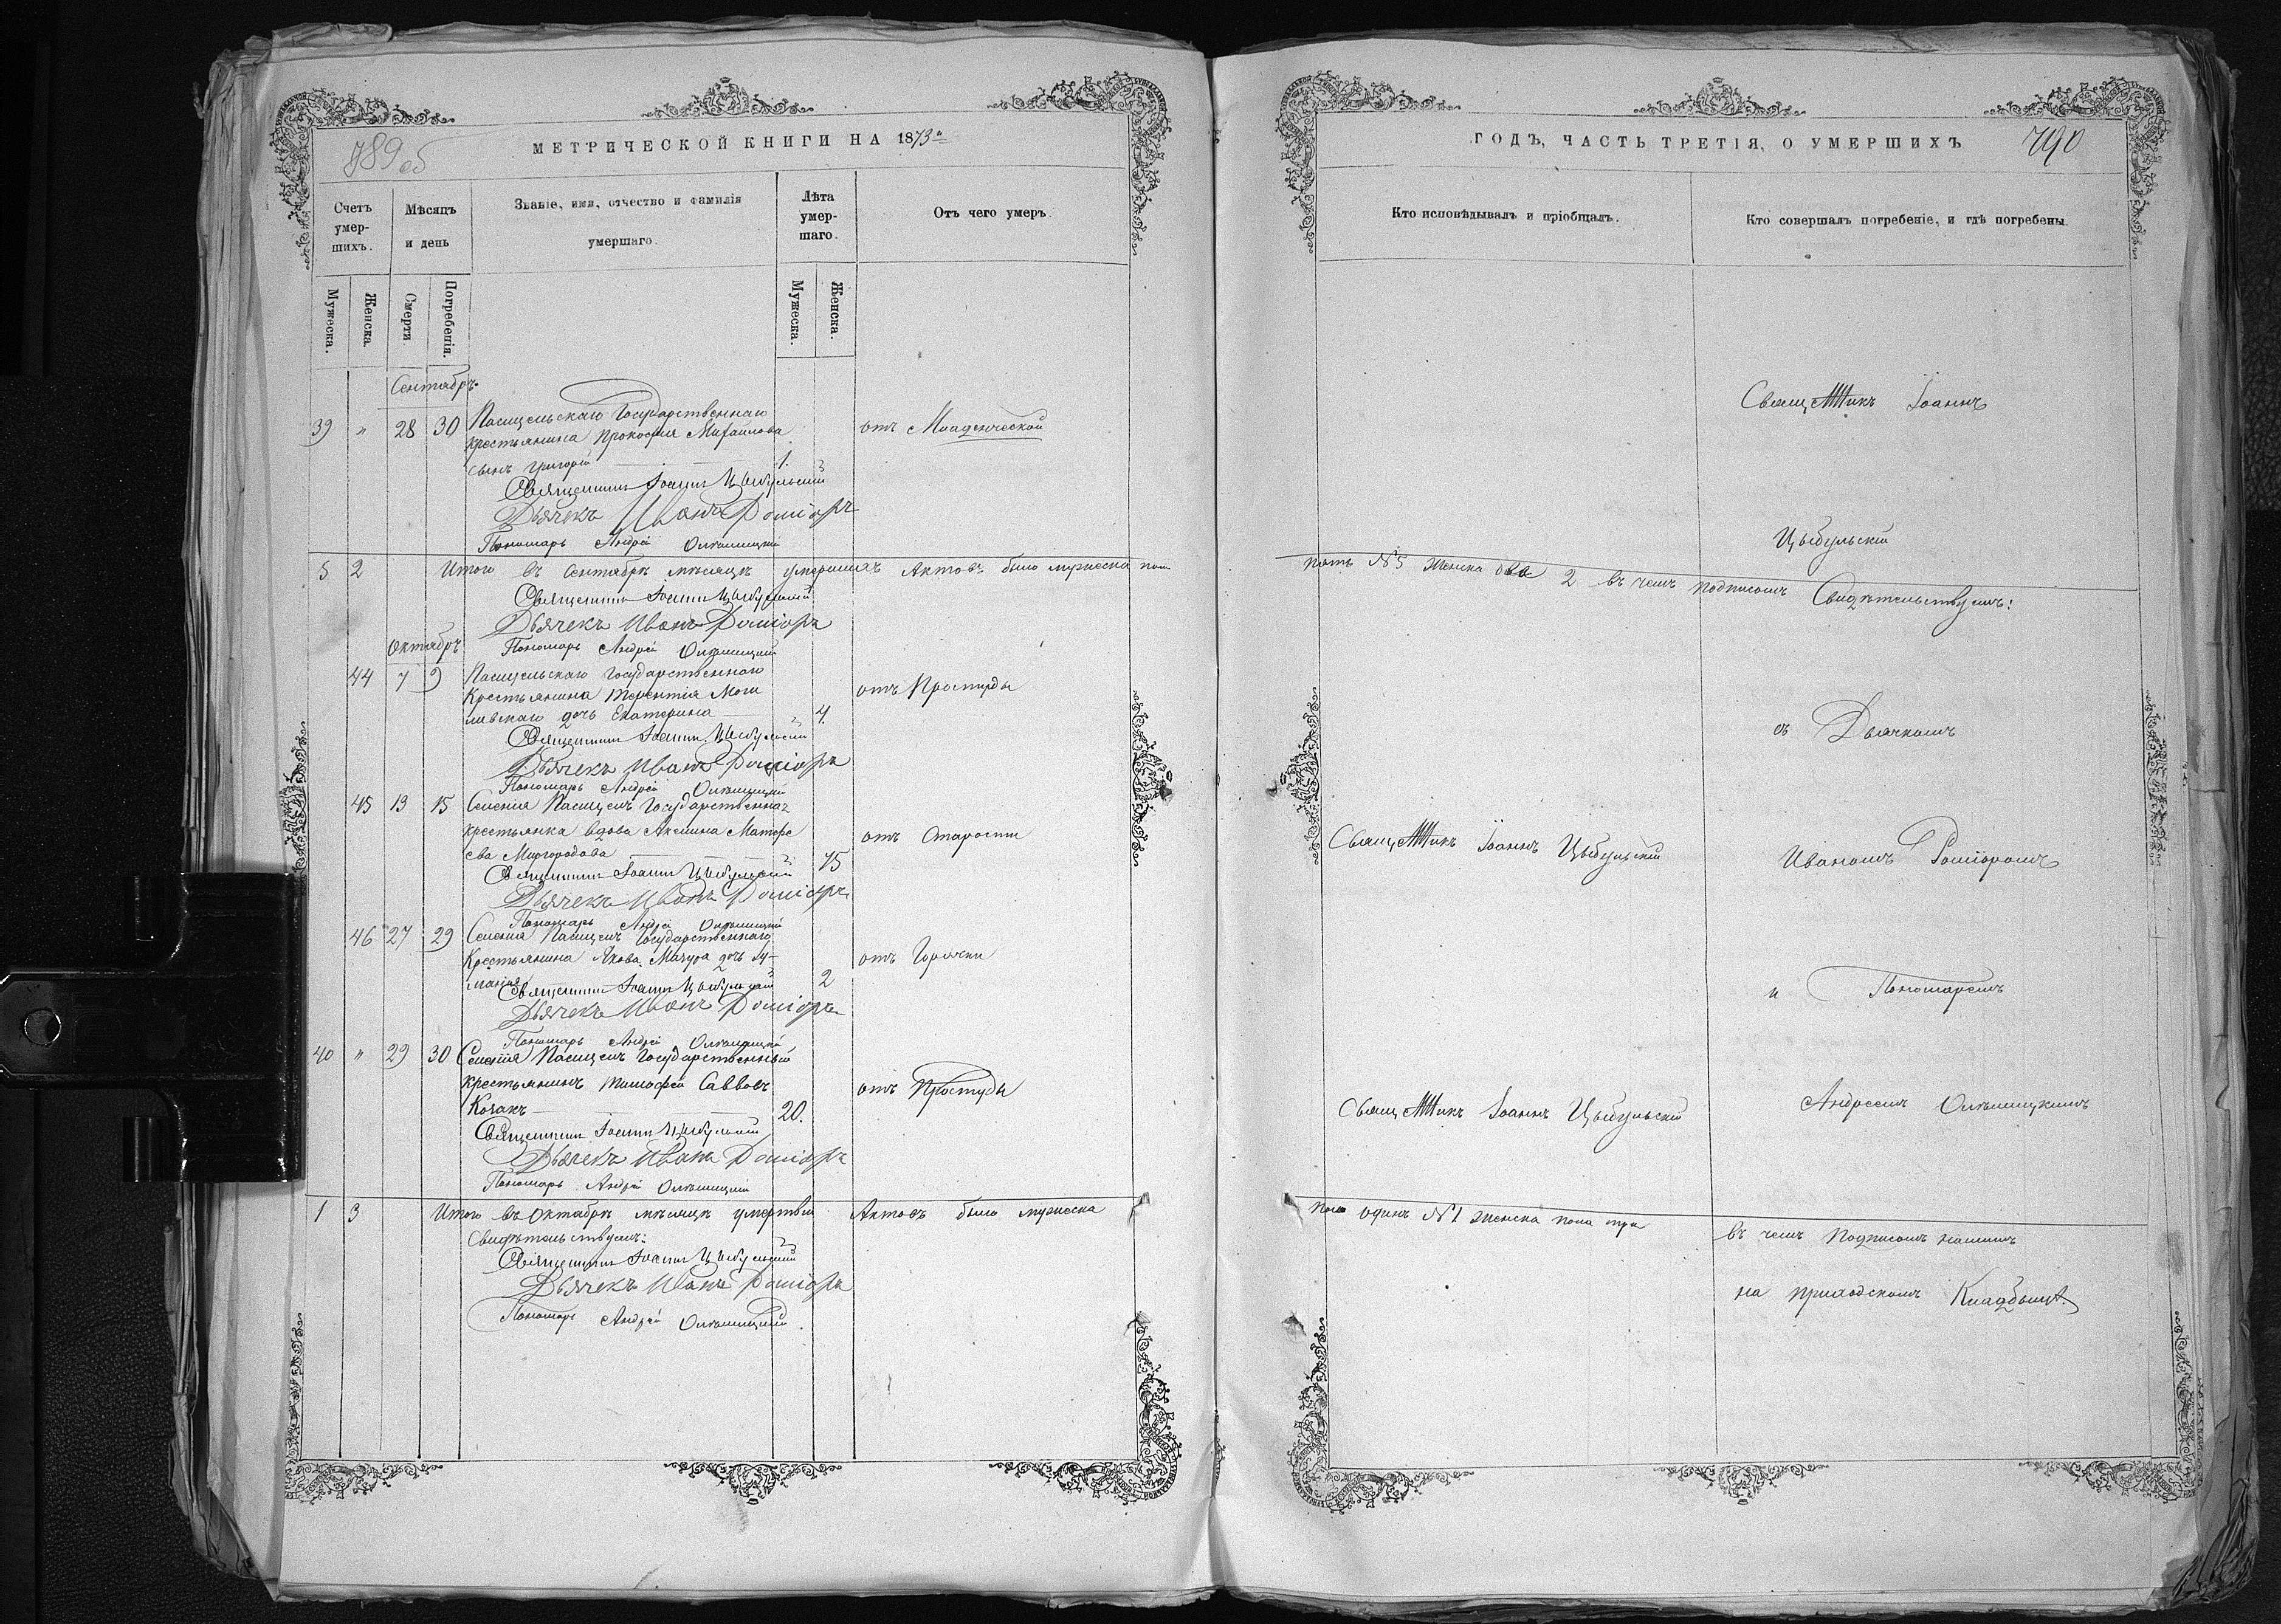 789 об
МЕТРИЧЕСКОЙ КНИГИ НА 1873й
Счетъ умер-шихъ.
Мѣсяцъ и день
Званіе, имя, отчество и фамилія умершаго.
Лѣта умер-шаго.
Отъ чего умеръ.
Мужеска.
Женска.
Смерти
Погребенія.
Мужеска.
Женска.
Сентябрь
39 " 28 30 Пасицельскаго Государственнаго
крестьянина Прокофія Михайлова отъ Младенческой
сынъ Григорій 1.
Священникъ Іоаннъ Цыбульскій
Дьячекъ Иванъ Роміоръ
Пономарь Андрей
5 2 Итого въ Сентябрѣ мѣсяцѣ умершихъ Актовъ было мужеска пола
Священникъ Іоаннъ Цыбульскій
Дьячекъ Иванъ Роміоръ
Октябрь
Пономарь Андрей
44 7 9 Пасицельскаго Государственнаго
Крестьянина Терентія Моги отъ Простуды
левскаго дочь Екатерина 4.
Священникъ Іоаннъ Цыбульскій
Дьячекъ Иванъ Роміоръ
Пономарь Андрей
45 13 15 Селенія Пасицелъ Государственная
крестьянка вдова Аксинія Матфе отъ Старости
ева Миргородова 75
Священникъ Іоаннъ Цыбульскій
Дьячекъ Иванъ Роміоръ
Пономарь Андрей
46 27 29 Селенія Пасицелъ Государственнаго
Крестьянина Якова Мазура дочь отъ Горячки
2
Священникъ Іоаннъ Цыбульскій
Дьячекъ Иванъ Роміоръ
Пономарь Андрей
40 " 29 30 Селенія Пасицелъ Государственный
крестьянинъ Тимофей Саввовъ отъ Простуды
Козакъ 20.
Священникъ Іоаннъ Цыбульскій
Дьячекъ Иванъ Роміоръ
Пономарь Андрей
1 3 Итого въ Октябрѣ мѣсяцѣ умертвія Актовъ было мужеска
Свидѣтельствуемъ:
Священникъ Іоаннъ Цыбульскій
Дьячекъ Иванъ Роміоръ
Пономарь Андрей
ГОДЪ, ЧАСТЬ ТРЕТІЯ, О УМЕРШИХЪ
790
Кто исповѣдывалъ и пріобщалъ.
Кто совершалъ погребеніе, и гдѣ погребены.
Священникъ Іоаннъ
Цыбульскій
пять №5 женска два 2 въ чемъ подписомъ Свидѣтельствуемъ:
съ Дьячкомъ
Священникъ Іоаннъ Цыбульскій
Иваномъ Роміоромъ
и Пономаремъ
Священникъ Іоаннъ Цыбульскій
Андреемъ
пола одинъ №1 женска пола три
въ чемъ Подписомъ нашимъ
на приходскомъ Кладбищѣ.